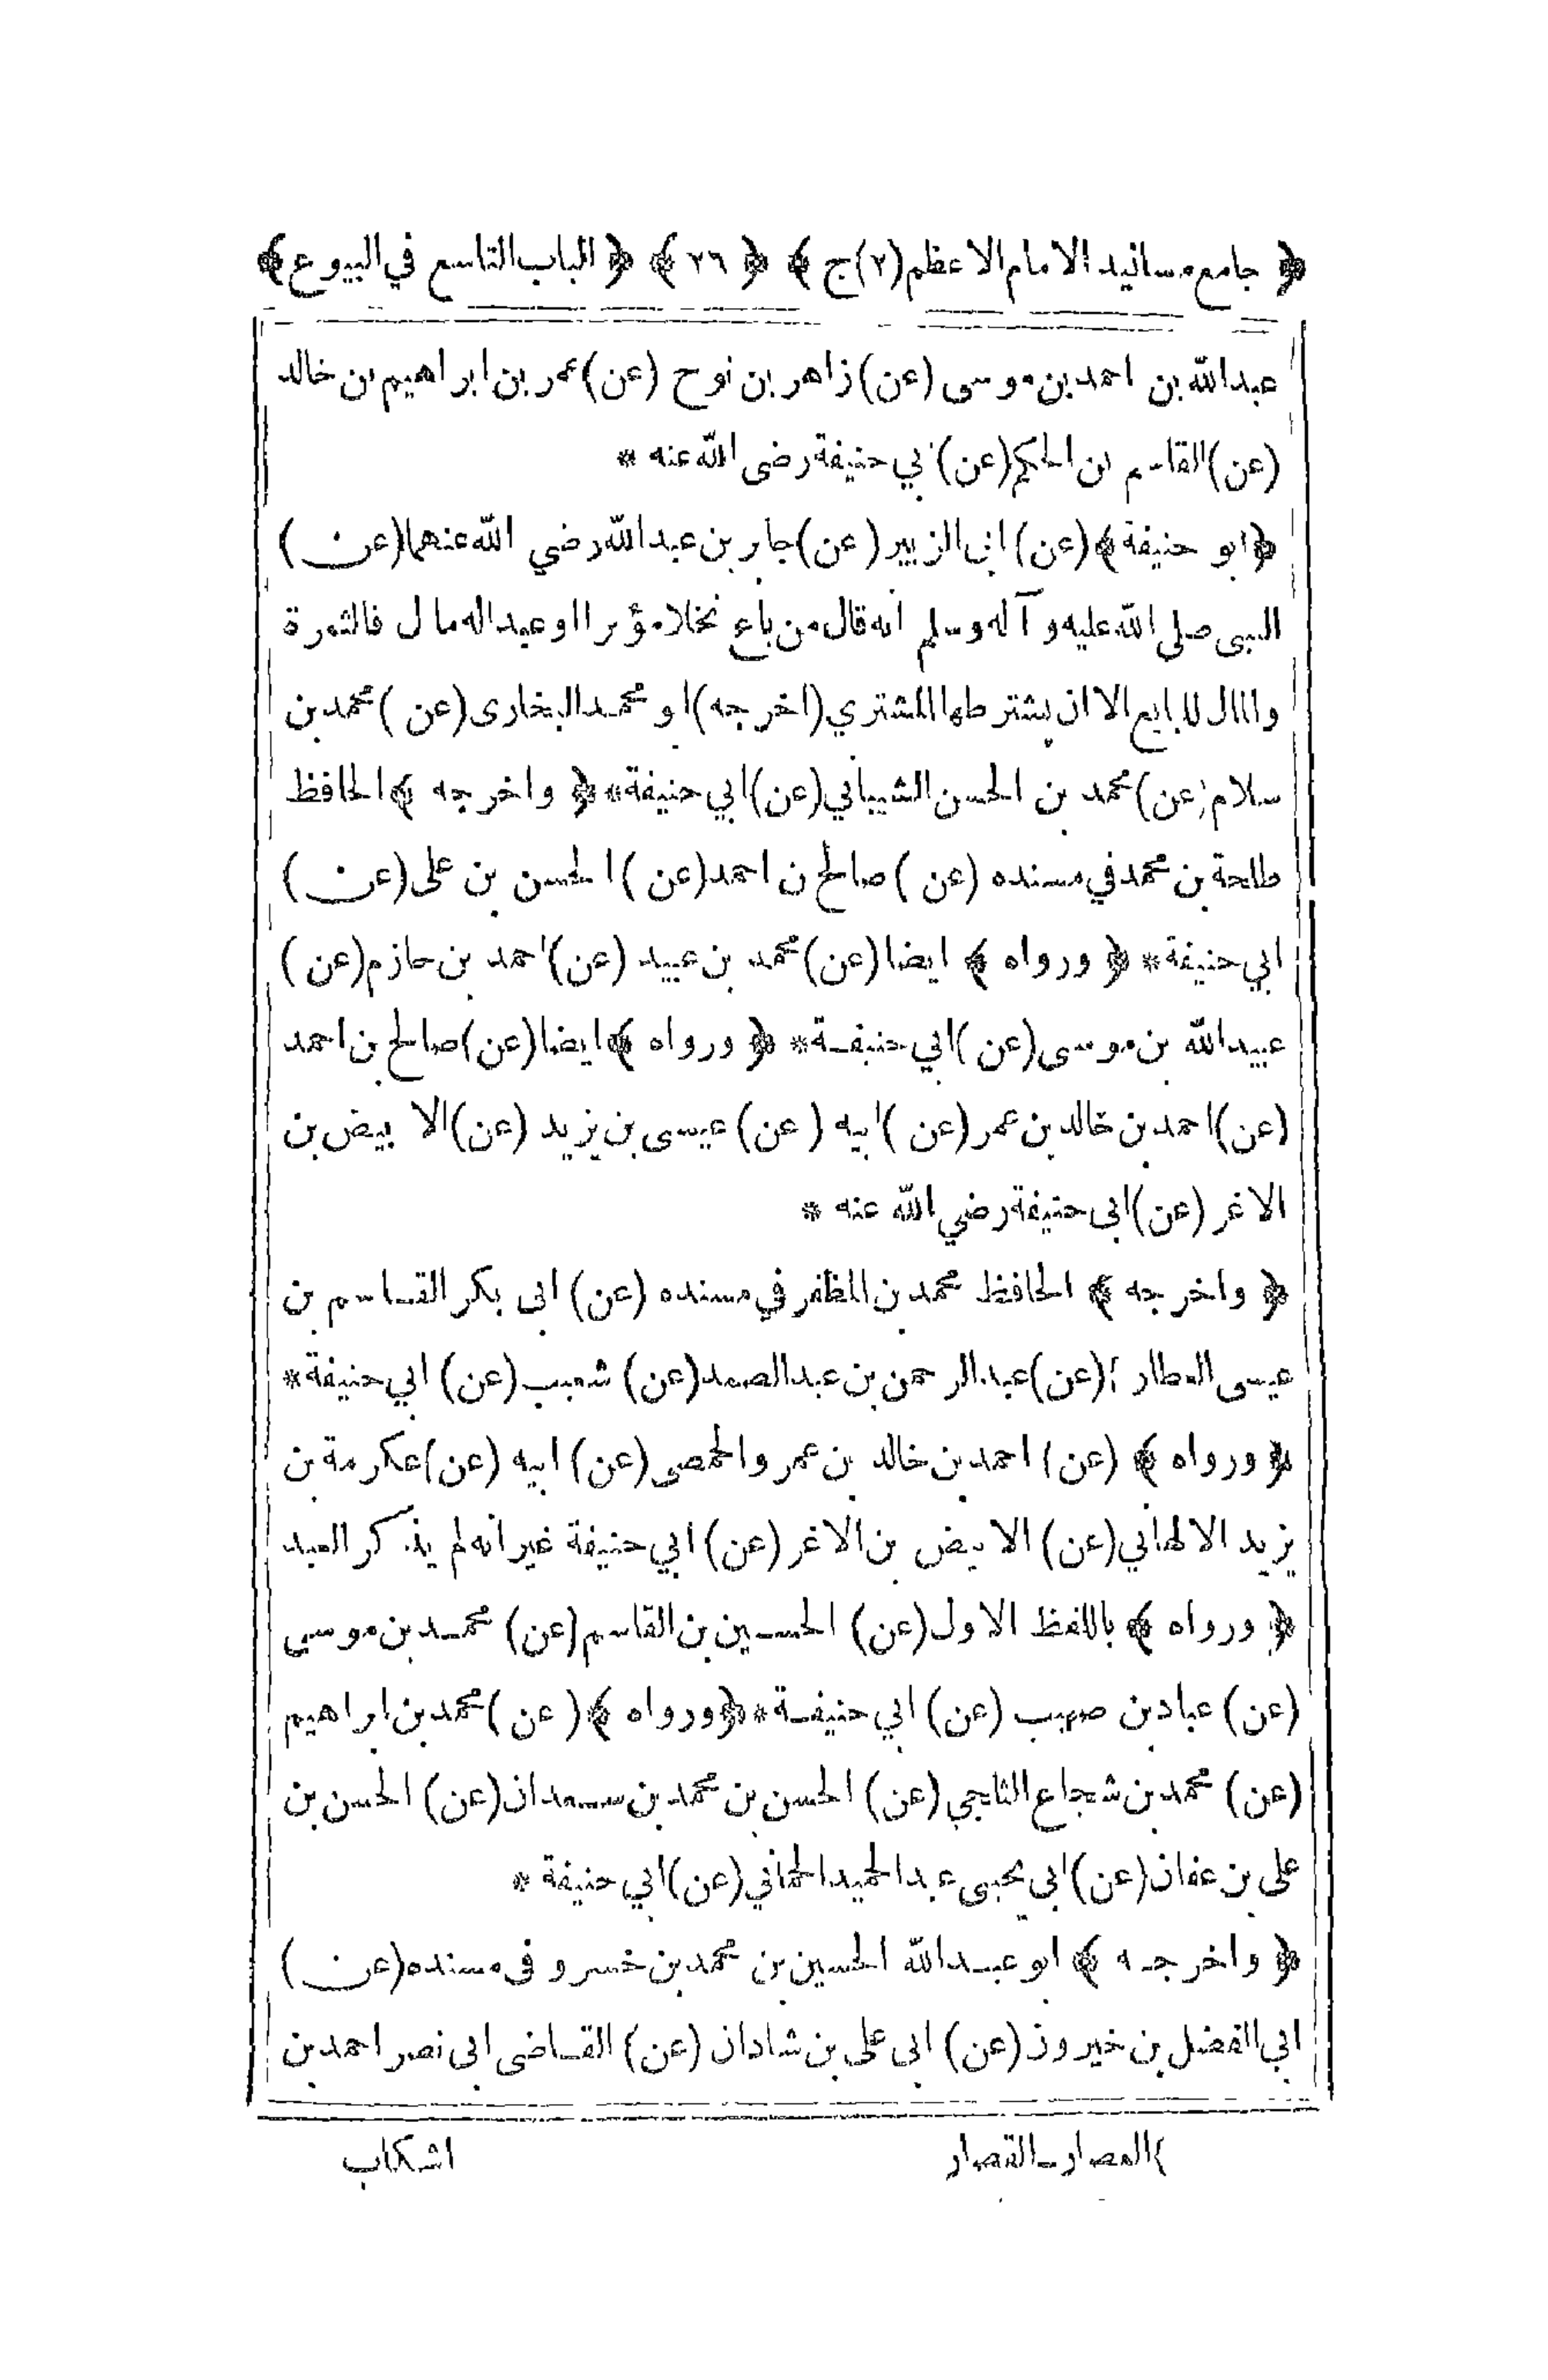 ﴿ جامع مسانيد الامام الاعظم (٢) ج ﴾ ﴿ ٢٦ ﴾ ﴿ الباب التاسع في البيوع ﴾
عبدالله بن احمد بن موسى (عن) زاهر بن نوح (عن) عمر بن ابراهيم بن خالد
(عن) القاسم بن الحكم (عن) ابي حنيفة رضى الله عنه *
﴿ابو حنيفة﴾ (عن) ابى الزبير (عن) جابر بن عبدالله رضي الله عنهما (عن)
النبى صلى الله عليه و آله وسلم انه قال من باع نخلا مؤبرا او عبدا له مال فالثمرة
والمال للبايع الا ان يشترطها المشتري (اخرجه) ابو محمد البخارى (عن) محمد بن
سلام (عن) محمد بن الحسن الشيباني (عن) ابي حنيفة * ﴿ واخرجه ﴾ الحافظ
طلحة بن محمد في مسنده (عن) صالح بن احمد (عن) الحسن بن على (عن)
ابي حنيفة * ﴿ ورواه ﴾ ايضا (عن) محمد بن عبيد (عن) احمد بن حازم (عن)
عبيدالله بن موسى (عن) ابي حنيفة * ﴿ ورواه ﴾ ايضا (عن) صالح بن احمد
(عن) احمد بن خالد بن عمر (عن) ابيه (عن) عيسى بن يزيد (عن) الابيض بن
الاغر (عن) ابى حنيفة رضي الله عنه *
﴿ واخرجه ﴾ الحافظ محمد بن المظفر في مسنده (عن) ابى بكر القاسم بن
عيسى العطار ؛ (عن) عبدالرحمن بن عبدالصمد (عن) شعيب (عن) ابي حنيفة *
﴿ ورواه ﴾ (عن) احمد بن خالد بن عمرو الحمصى (عن) ابيه (عن) عكرمة بن
يزيد الالهاني (عن) الابيض بن الاغر (عن) ابي حنيفة غير انه لم يذكر العبد
﴿ ورواه ﴾ باللفظ الاول (عن) الحسين بن القاسم (عن) محمد بن موسى
(عن) عباد بن صهيب (عن) ابي حنيفة * ﴿ ورواه ﴾ (عن) محمد بن ابراهيم
(عن) محمد بن شجاع الثلجي (عن) الحسن بن محمد بن سعدان (عن) الحسن بن
على بن عفان (عن) ابى يحيى عبدالحميد الحماني (عن) ابي حنيفة *
﴿ واخرجه ﴾ ابو عبدالله الحسين بن محمد بن خسرو فى مسنده (عن)
ابي الفضل بن خيرون (عن) ابى على بن شاذان (عن) القاضى ابى نصر احمد بن
اشكاب
؛ العصار ـ القصار